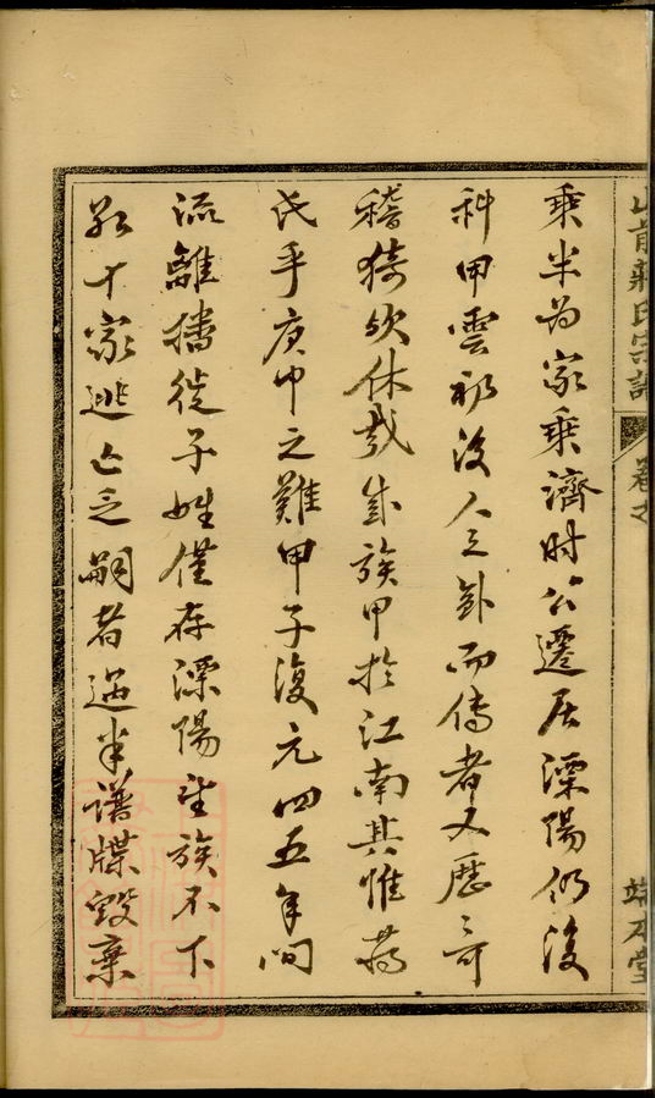 山前蔣氏宗譜 卷之 端本堂
乘半为家乘濟时公遷居溧陽仍復
科甲雲礽後人而傳者又歷〻可
稽猗欤休哉族甲於江南其惟蔣
氏乎庚申之難甲子復元四五年间
流離播徙子姓僅存溧陽望族不下
数十家逃亡乏嗣者過半譜牒毀棄